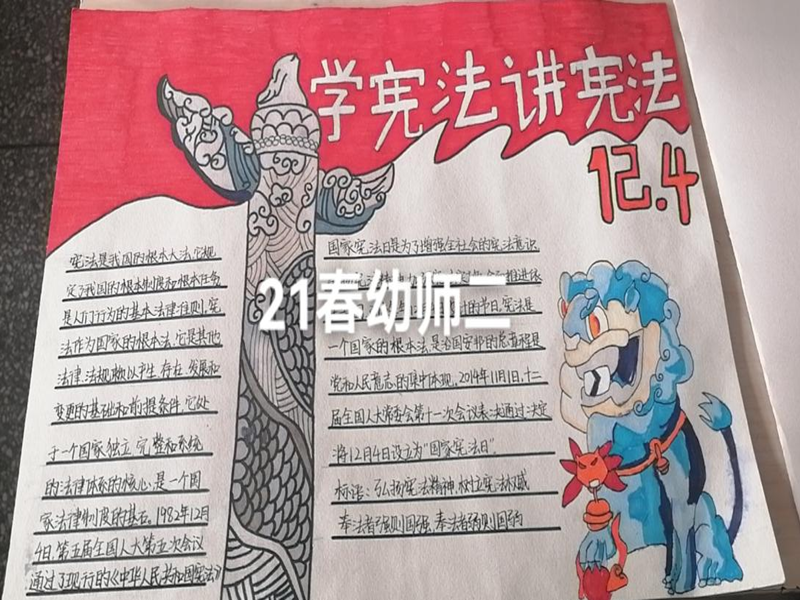 学宪法讲宪法
12.4
宪法是我国的根本大法,它规
定了我国的根本制度和根本任务
是人们行为的基本法律准则,宪
法作为国家的根本法,它是其他
法律、法规赖以产生、存在、发展和
变更的基础和前提条件,它处
于一个国家独立、完整和系统
的法律体系的核心,是一个国
家法律制度的基石。1982年12月
4日,第五届全国人大第五次会议
通过了现行的《中华人民共和国宪法》
国家宪法日是为了增强全社会的宪法意识
推进依
的节日,宪法是
一个国家的根本法,是治国安邦的总章程,是
党和人民意志的集中体现。2014年11月1日,十二
届全国人大常委会第十一次会议表决通过决定
将12月4日设立为"国家宪法日"。
标语:弘扬宪法精神,树立宪法权威
奉法者强则国强,奉法者弱则国弱
21春幼师二